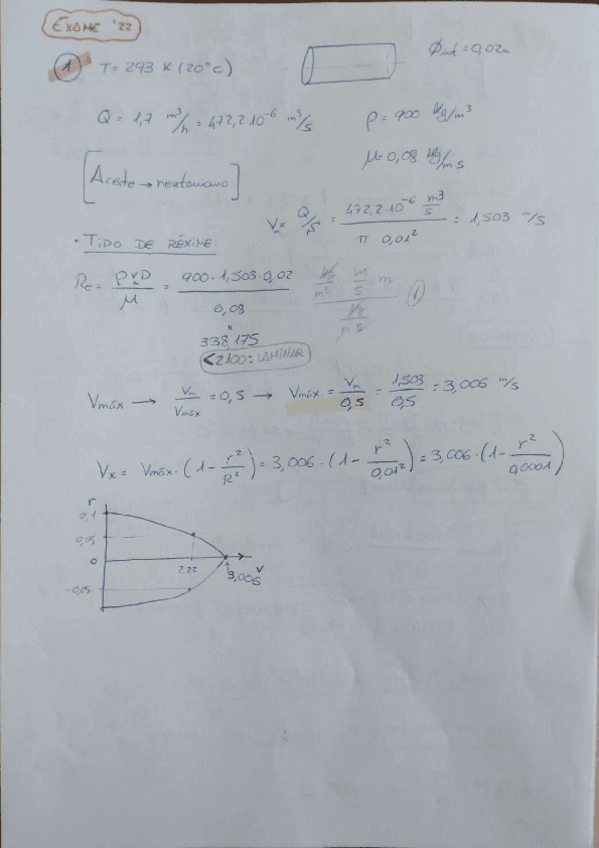 EXAME '22
1 T = 293 K (20°C)
Φint = 0,02m
Q = 1,7 m³/h = 472,2·10⁻⁶ m³/s
ρ = 900 kg/m³
μ = 0,08 kg/m s
[Aceite → newtoniano]
Vm = Q/S = 472,2·10⁻⁶ m³/s / π · 0,01² = 1,503 m/s
• TIPO DE RÉXIME:
Re = ρvD/μ = 900 · 1,503 · 0,02 / 0,08 = 338,175
kg/m³ · m/s · m / kg/m s
< 2100: LAMINAR
Vmáx → Vm/Vmáx = 0,5 → Vmáx = Vm/0,5 = 1,503/0,5 = 3,006 m/s
Vx = Vmáx · (1 - r²/R²) = 3,006 · (1 - r²/0,01²) = 3,006 · (1 - r²/0,0001)
r
0,1
0,05
0
-0,05
2,25
3,006
V